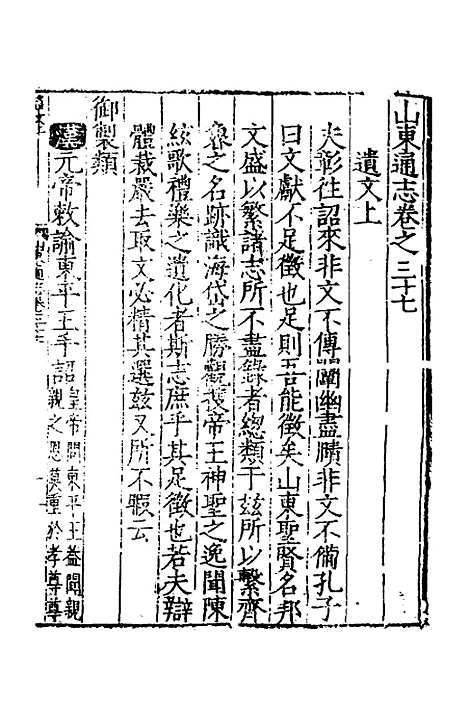 山東通志卷之三十七
遺文上
夫彰往詔來非文不傳闡幽盡賾非文不備孔子
曰文獻不足徵也足則吾能徵矣山東聖賢名邦
文盛以繁諸志所不盡錄者總類于兹所以繫齊
魯之名跡識海岱之勝觀裒帝王神聖之逸聞陳
絃歌禮樂之遺化者斯志庶乎其足徵也若夫辯
體裁嚴去取文必精其選兹又所不暇云
御製類
漢元帝敕諭東平王宇詔皇帝問東平王蓋聞親
親之恩莫重於孝尊尊